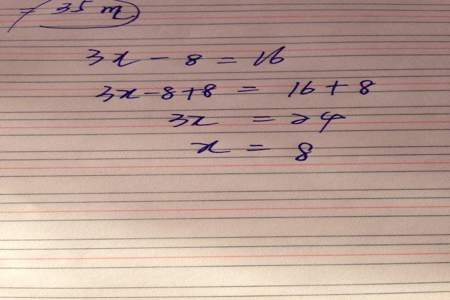 = 35 m
3x - 8 = 16
3x-8+8 = 16 + 8
3x = 24
x = 8